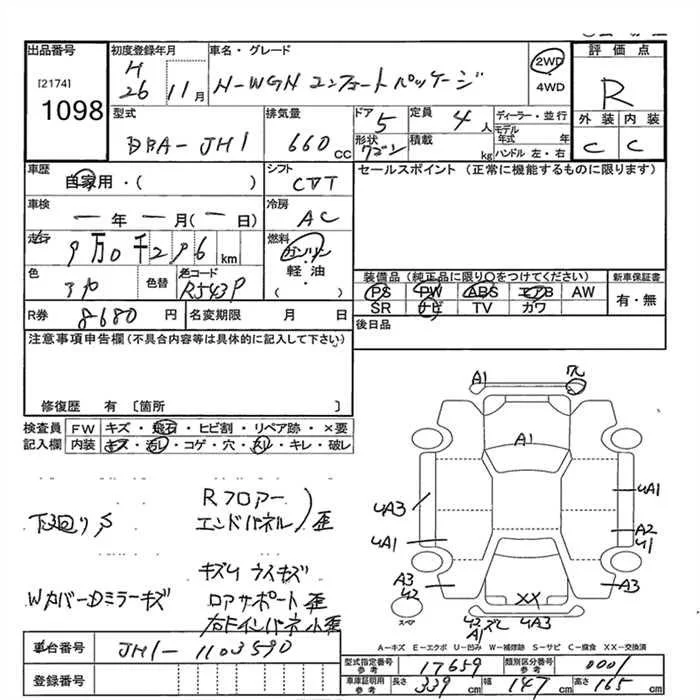 出品番号
[2174]
1098
初度登録年月
H26 11月
車名・グレード
N-WGN コンフォートパッケージ
2WD
4WD
評価点
R
外装 内装
C C
型式
DBA-JH1
排気量
660 cc
ドア 5
形状 ワゴン
定員 4人
積載 kg
ディーラー・並行
モデル年式 年
ハンドル 左・右
車歴
自家用・( )
シフト
CVT
セールスポイント(正常に機能するものに限ります)
車検
— 年 — 月(— 日)
冷房
AC
走行
9万0千296 km
燃料
ガソリン
軽・油
( )
色
色替
色コード
R543P
装備品(純正品に限り○をつけてください)
新車保証書
PS PW ABS エアB AW
有・無
SR ナビ TV カワ
R券 8680 円
名変期限 月 日
後日品
注意事項申告欄(不具合内容等は具体的に記入して下さい)
修復歴 有 〔箇所 〕
検査員記入欄
FW キズ・飛石・ヒビ割・リペア跡・×要
内装 キズ・汚レ・コゲ・穴・スレ・キレ・破レ
下回りS
Rフロアー
エンドパネル)歪
キズU ウスキズ
WカバーDミラーキズ
ロアサポート歪
右Fインパネ小歪
A1
A1
UA3
UA1
UA1
A2
U1
A3
U2
A3
XX
UA3
スペア
A-キズ E-エクボ U-凹み W-補修跡 S-サビ C-腐食 XX-交換済
車台番号
JH1-1103590
登録番号
型式指定番号 参考
17659
類別区分番号 参考
0001
車庫証明用 参考
長さ 339 cm
幅 147 cm
高さ 165 cm